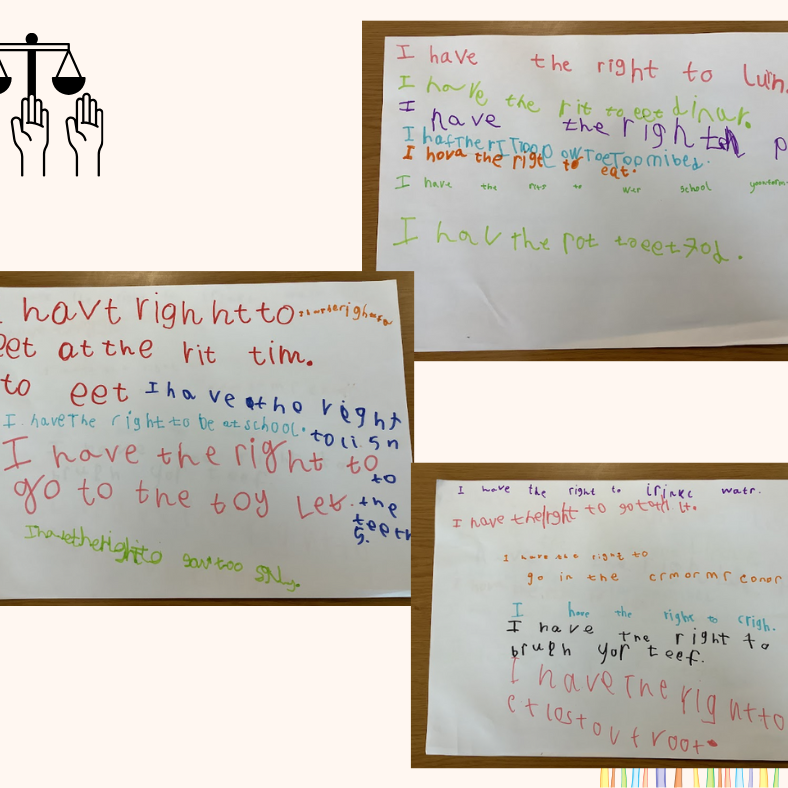 I have the right to Luin
I have the rit to eet dinur.
I have the right p
I hafTherITToop owToeTopmibed.
I hova the rigt to eat.
I have the to wer school
I hav the rot toeet fod.
I havt righhtto
eet at the rit tim.
to eet
I have tho right
to li sn
to
the
teeth
s.
I. haveThe right to be at school.
I have the right to
go to the toy Let.
Ihavetherightto gav too
I have the right to irinkc watr.
I have the right to go toth Lt.
I have the right to
go in the crmormr conor
I have the right to crigh.
I have the right to
brush yor teef.
I have The rightto
et lostovt root.